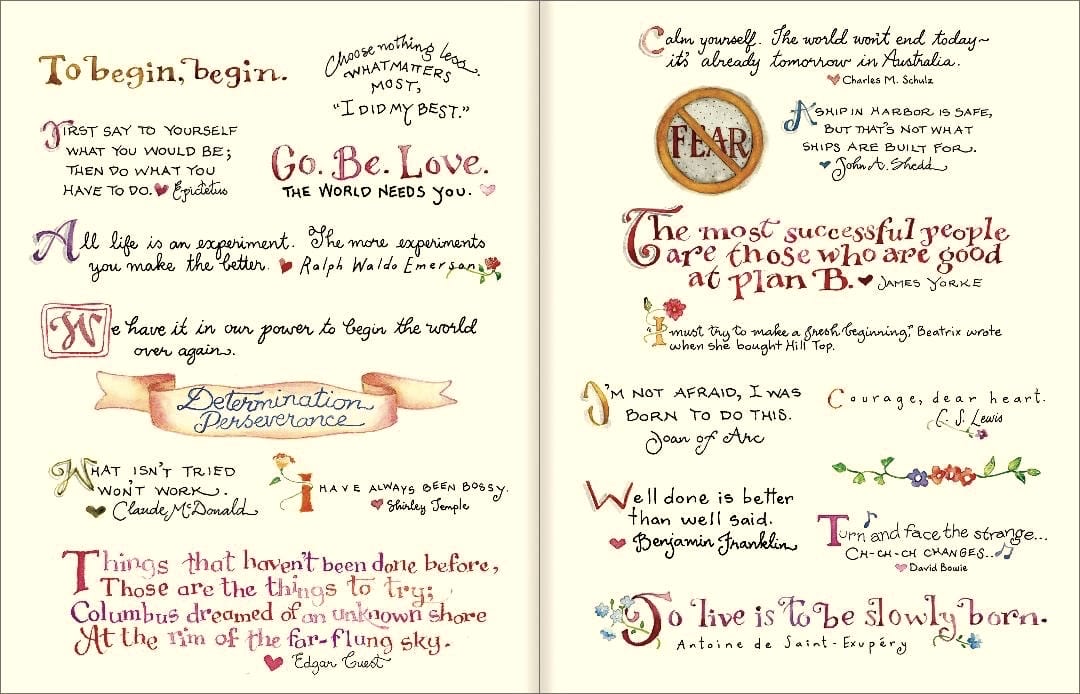 To begin, begin.
Choose nothing less.
WHAT MATTERS
MOST,
"I DID MY BEST."
FIRST SAY TO YOURSELF
WHAT YOU WOULD BE;
THEN DO WHAT YOU
HAVE TO DO. Epictetus
Go. Be. Love.
THE WORLD NEEDS YOU.
All life is an experiment. The more experiments
you make the better. Ralph Waldo Emerson
We have it in our power to begin the world
over again.
Determination
Perseverance
WHAT ISN'T TRIED
WON'T WORK.
Claude McDonald
I HAVE ALWAYS BEEN BOSSY.
Shirley Temple
Things that haven't been done before,
Those are the things to try;
Columbus dreamed of an unknown shore
At the rim of the far-flung sky.
Edgar Guest
Calm yourself. The world won't end today~
it's already tomorrow in Australia.
Charles M. Schulz
FEAR
A SHIP IN HARBOR IS SAFE,
BUT THAT'S NOT WHAT
SHIPS ARE BUILT FOR.
John A. Shedd
The most successful people
are those who are good
at plan B. JAMES YORKE
"I must try to make a fresh beginning," Beatrix wrote
when she bought Hill Top.
I'M NOT AFRAID, I WAS
BORN TO DO THIS.
Joan of Arc
Courage, dear heart.
C. S. Lewis
Well done is better
than well said.
Benjamin Franklin
Turn and face the strange...
CH-CH-CH CHANGES...
David Bowie
To live is to be slowly born.
Antoine de Saint-Exupéry